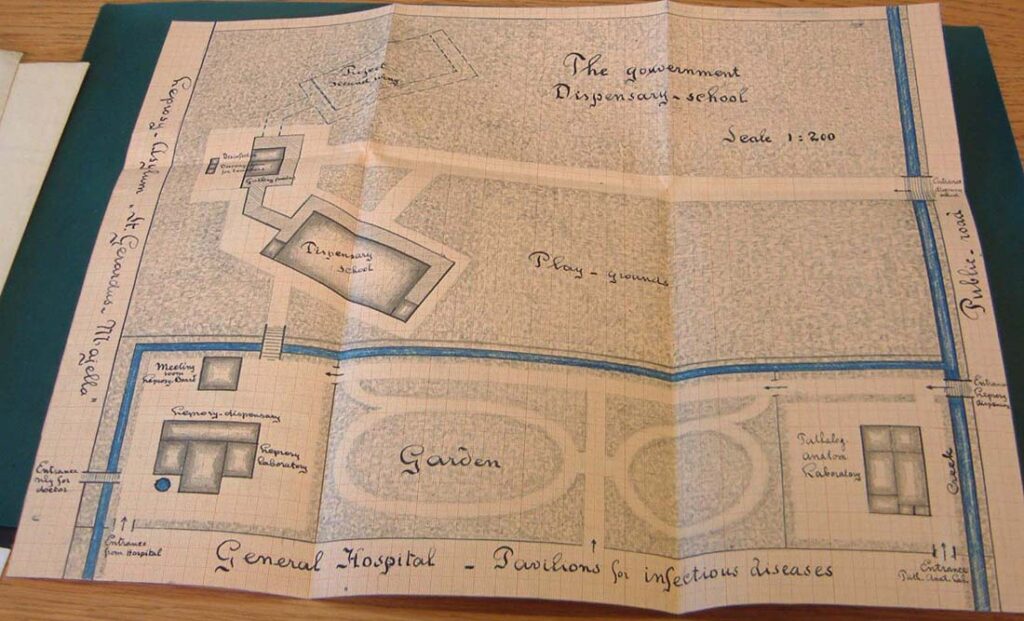 The gouvernment
Dispensary-school
Scale 1:200
Project
second wing
Leprosy-Asylum "St Gerardus-Majella"
Dispensary
school
Play-grounds
Entrance
Public-road
Meeting
room
Leprosy-Board
Leprosy-dispensary
Leprosy
Laboratory
Garden
Patholog
Anatom
Laboratory
Entrance
Leprosy
Creek
Entrance
only for
doctor
Entrance
from Hospital
General Hospital - Pavilions for infectious diseases
Entrance
Path. Anat. Lab.